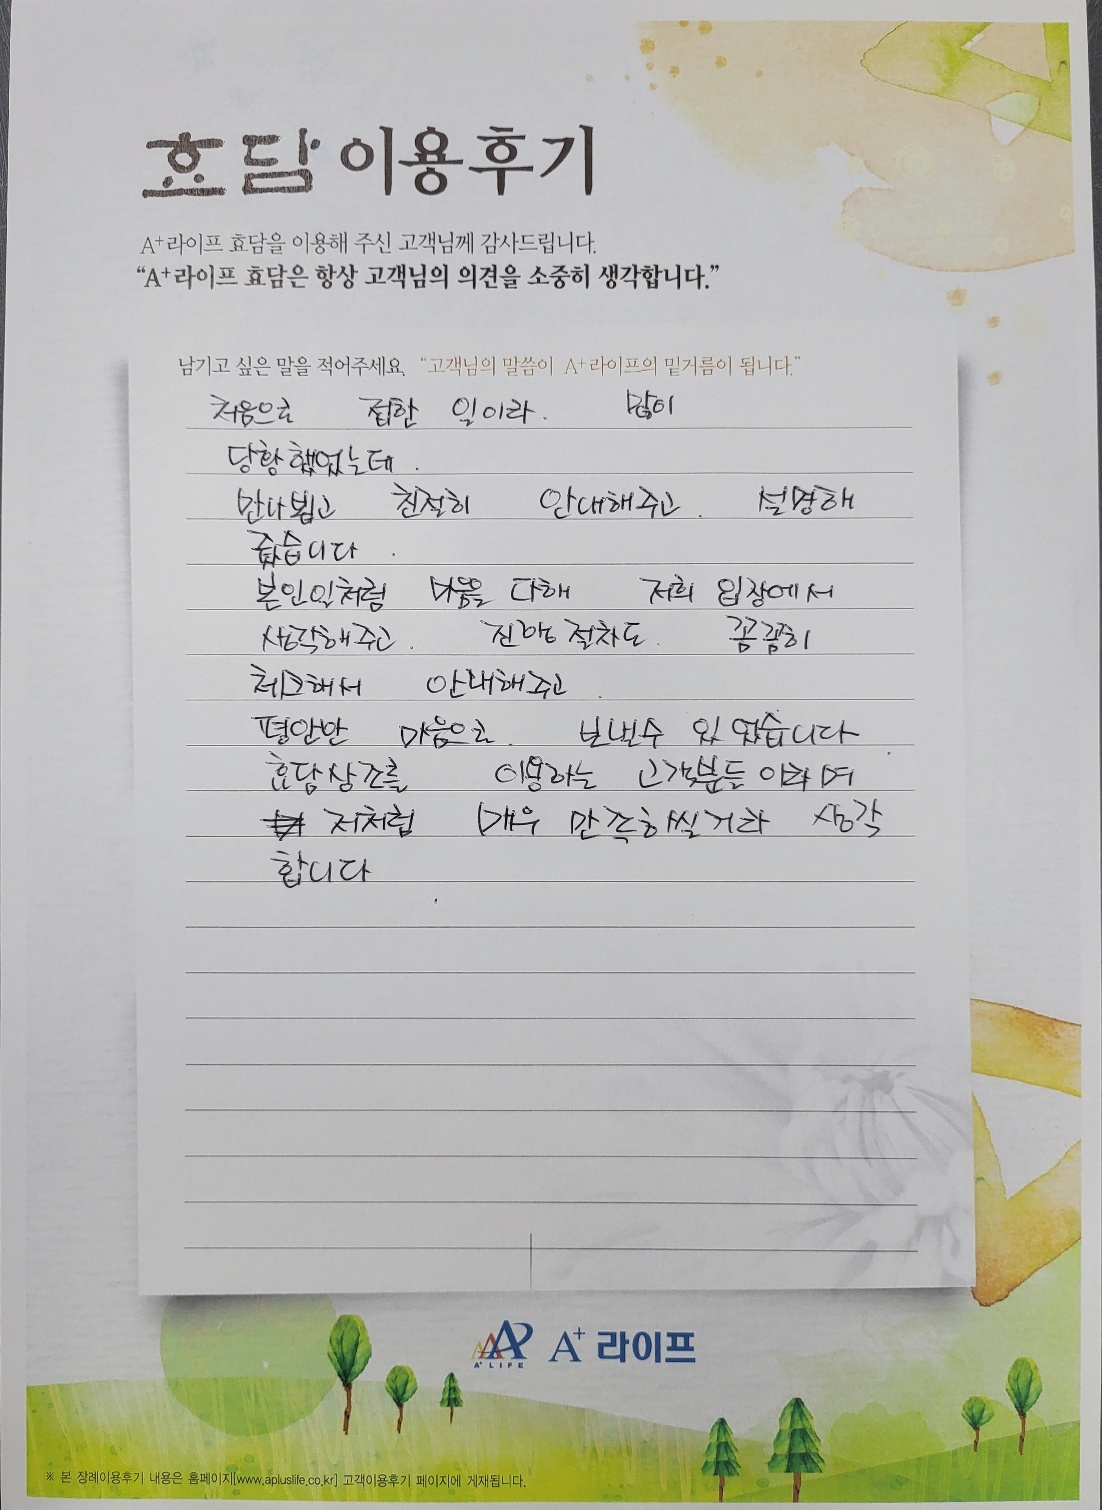 효담 이용후기
A⁺라이프 효담을 이용해 주신 고객님께 감사드립니다.
“A⁺라이프 효담은 항상 고객님의 의견을 소중히 생각합니다.”
남기고 싶은 말을 적어주세요. “고객님의 말씀이 A⁺라이프의 밑거름이 됩니다.”
처음으로 접한 일이라. 많이
당황했었는데.
만나뵙고 친절히 안내해주고. 설명해
줬습니다.
본인일처럼 마음을 다해 저희 입장에서
생각해주고. 진행절차도. 꼼꼼히
체크해서 안내해주고.
평안한 마음으로. 보낼수 있었습니다
효담상조를 이용하는 고객분들 이라며
저처럼 매우 만족하실거라 생각
합니다
A⁺ LIFE A⁺ 라이프
※ 본 장례이용후기 내용은 홈페이지[www.apluslife.co.kr] 고객이용후기 페이지에 게재됩니다.